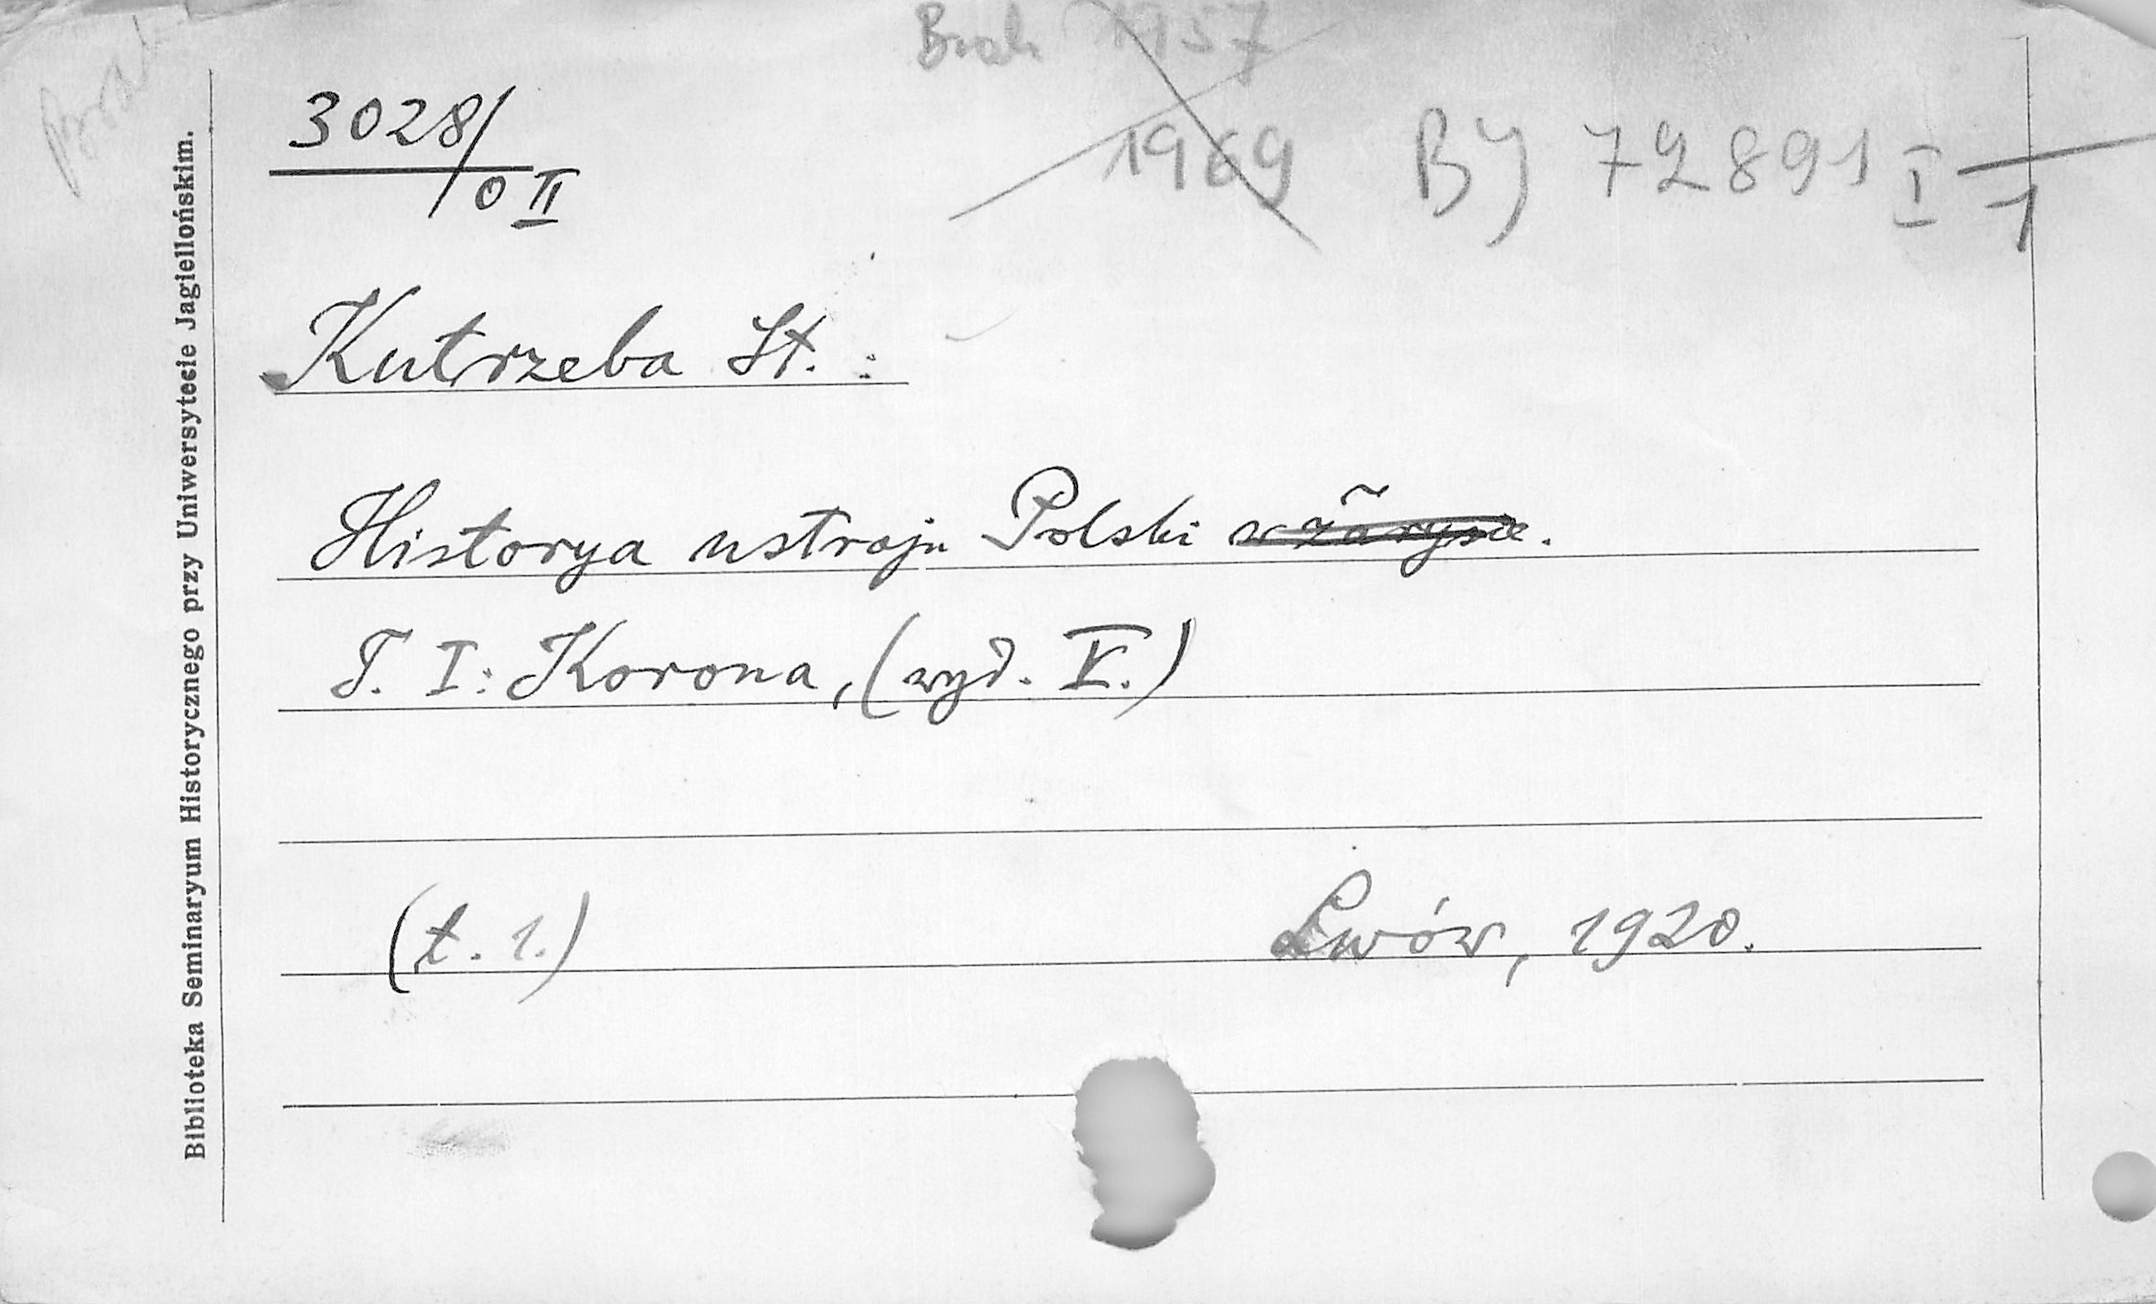 Brak
Brak 1957
1969 BJ 72891 I
1
3028/
0 II
Kutrzeba St.:
Historya ustroju Polski w zarysie.
T. I: Korona, (wyd. V.)
(t. 1.) Lwów, 1920.
Biblioteka Seminaryum Historycznego przy Uniwersytecie Jagiellońskim.